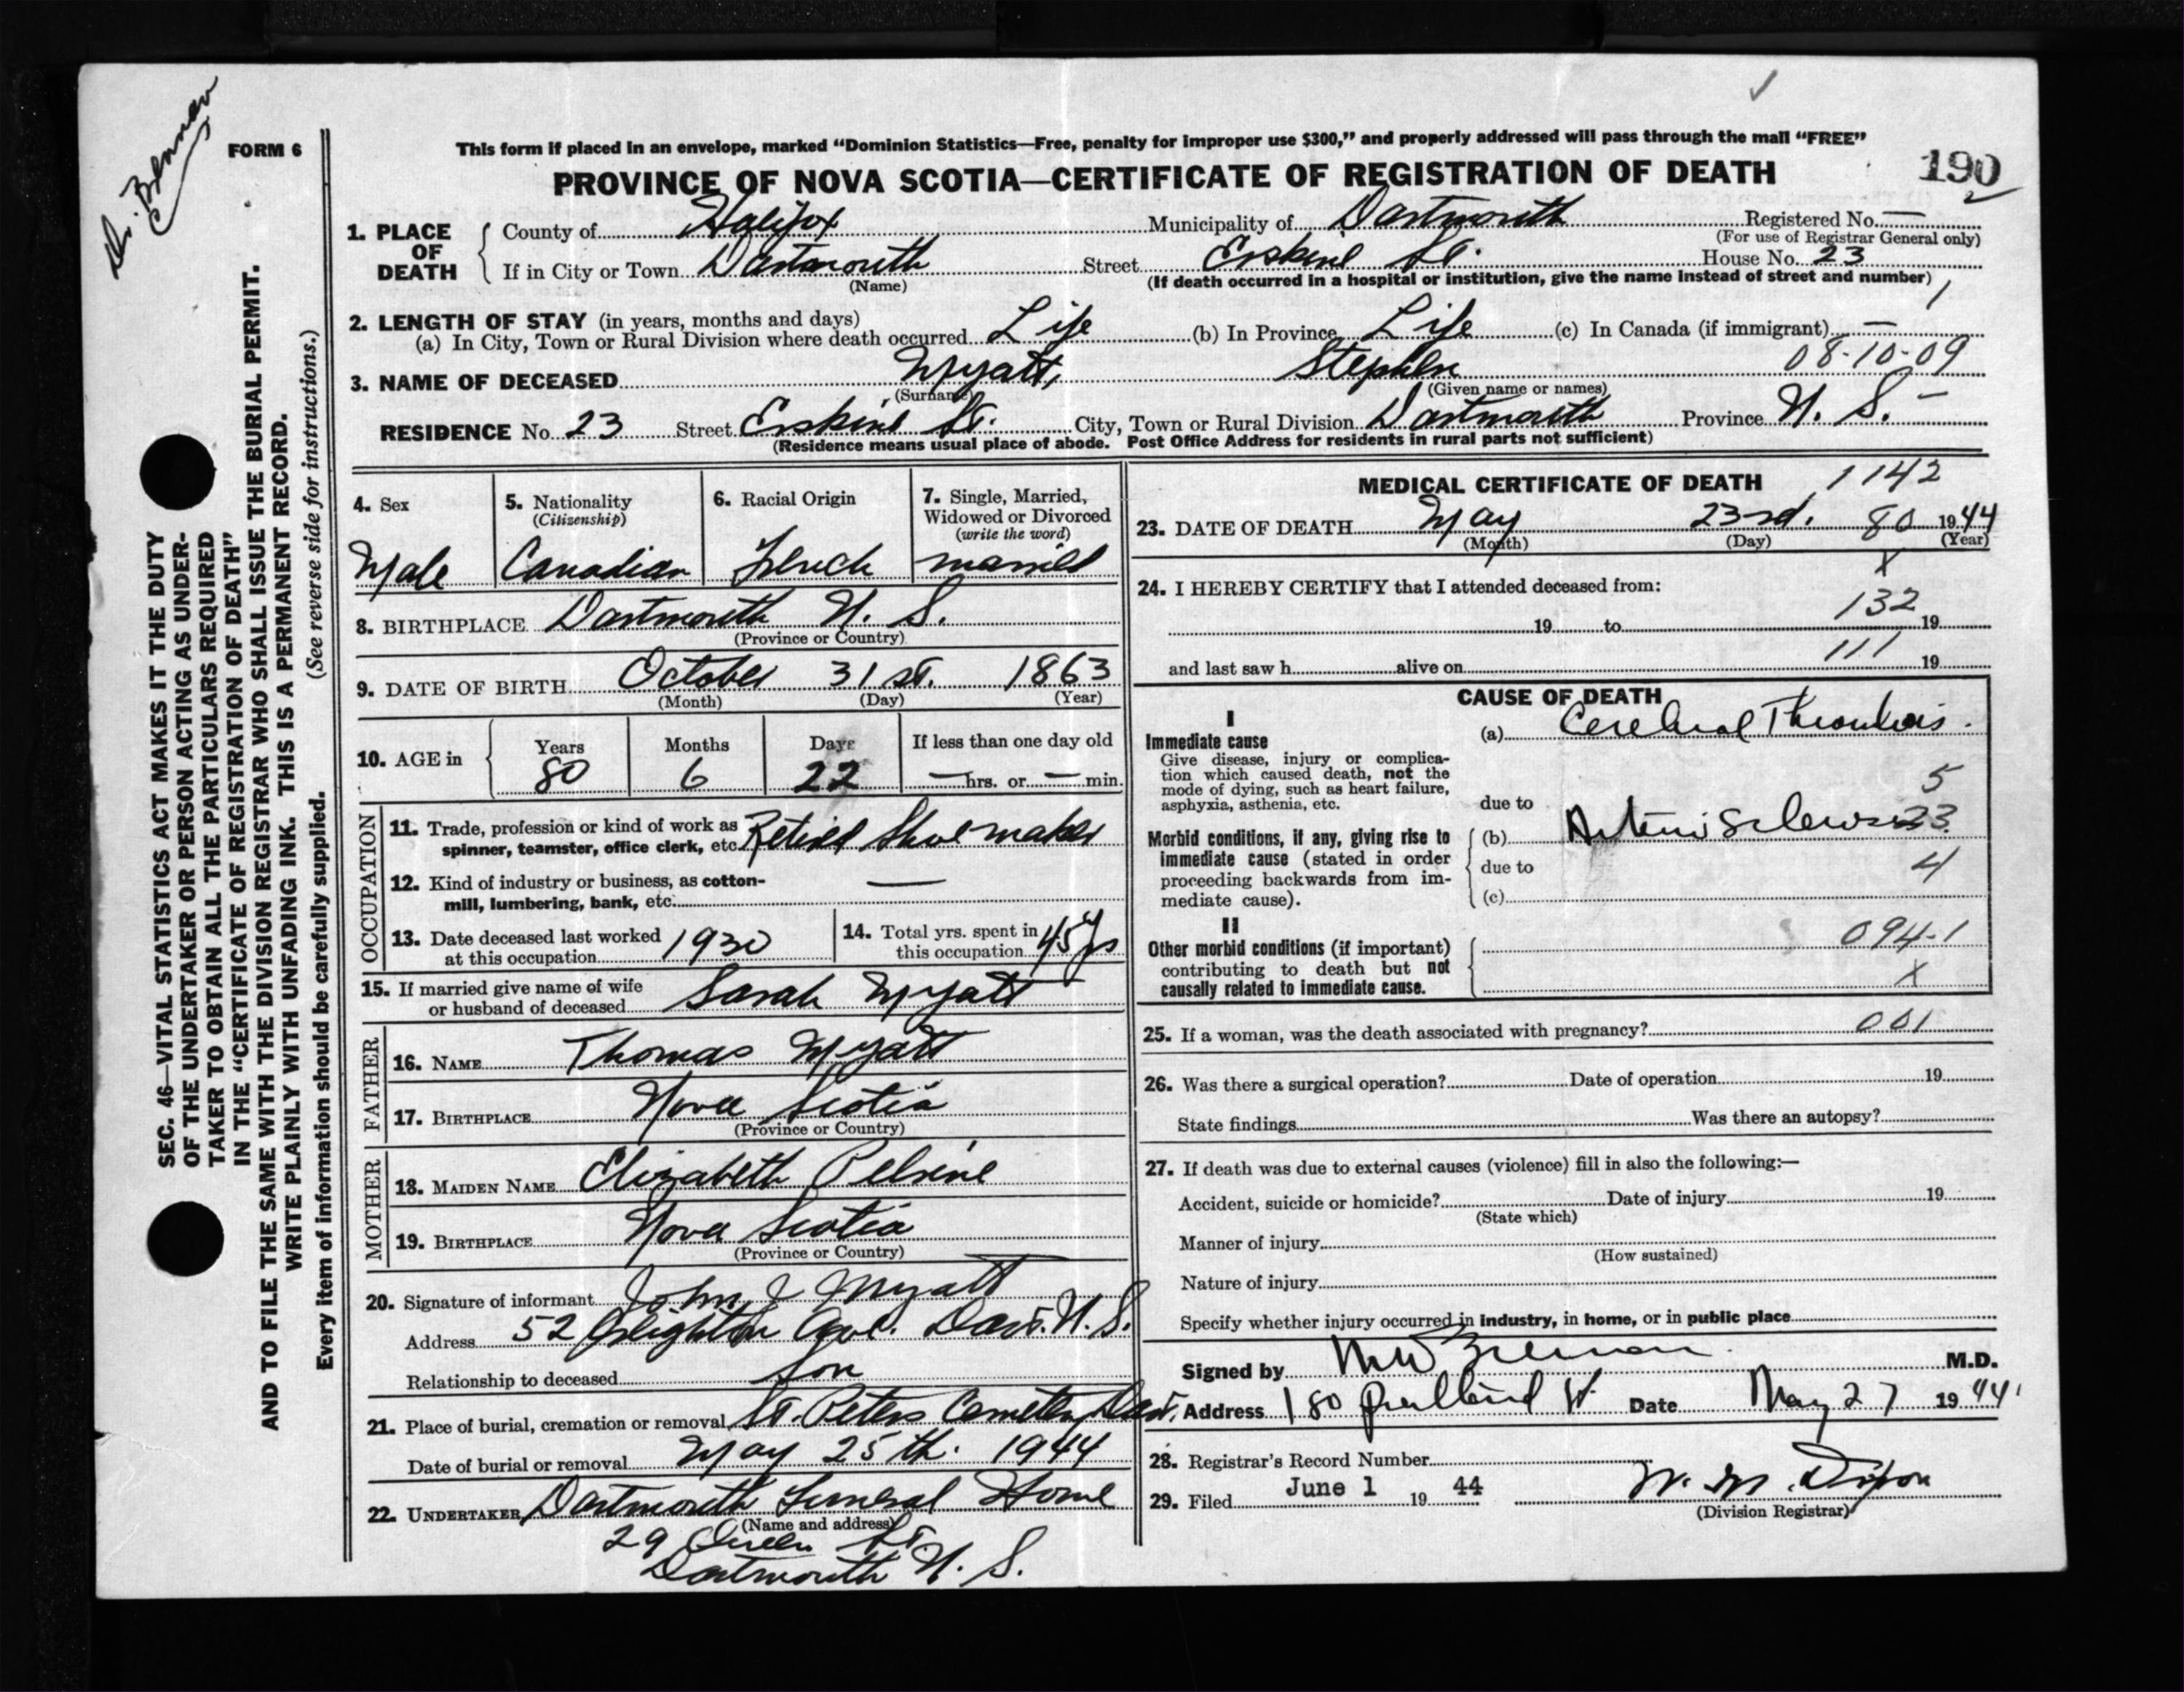 Dr. Brennan
FORM 6
This form if placed in an envelope, marked "Dominion Statistics—Free, penalty for improper use $300," and properly addressed will pass through the mail "FREE"
PROVINCE OF NOVA SCOTIA—CERTIFICATE OF REGISTRATION OF DEATH
190
2
1. PLACE OF DEATH
County of Halifax Municipality of Dartmouth Registered No. —
(For use of Registrar General only)
If in City or Town Dartmouth Street Erskine St. House No. 23
(Name) (If death occurred in a hospital or institution, give the name instead of street and number)
1
2. LENGTH OF STAY (in years, months and days)
(a) In City, Town or Rural Division where death occurred Life (b) In Province Life (c) In Canada (if immigrant) —
08-10-09
3. NAME OF DECEASED Myatt, Stephen
(Surname) (Given name or names)
RESIDENCE No. 23 Street Erskine St. City, Town or Rural Division Dartmouth Province N. S. –
(Residence means usual place of abode. Post Office Address for residents in rural parts not sufficient)
4. Sex
Male
5. Nationality
(Citizenship)
Canadian
6. Racial Origin
French
7. Single, Married,
Widowed or Divorced
(write the word)
married
8. BIRTHPLACE Dartmouth N. S.
(Province or Country)
9. DATE OF BIRTH October 31 st. 1863
(Month) (Day) (Year)
10. AGE in
Years Months Days If less than one day old
80 6 22 — hrs. or — min.
OCCUPATION
11. Trade, profession or kind of work as
spinner, teamster, office clerk, etc. Retired Shoemaker
12. Kind of industry or business, as cotton-
mill, lumbering, bank, etc. —
13. Date deceased last worked
at this occupation 1930
14. Total yrs. spent in
this occupation 45 yrs
15. If married give name of wife
or husband of deceased Sarah Myatt
FATHER
16. NAME Thomas Myatt
17. BIRTHPLACE Nova Scotia
(Province or Country)
MOTHER
18. MAIDEN NAME Elizabeth Pelrine
19. BIRTHPLACE Nova Scotia
(Province or Country)
20. Signature of informant John J Myatt
Address 52 Creighton Ave. Dart. N. S.
Relationship to deceased Son
21. Place of burial, cremation or removal St. Peters Cemetery Dart.
Date of burial or removal May 25 th. 1944
22. UNDERTAKER Dartmouth Funeral Home
(Name and address)
29 Queen St.
Dartmouth N. S.
MEDICAL CERTIFICATE OF DEATH 1142
23. DATE OF DEATH May 23rd. 80 1944
(Month) (Day) (Year)
X
24. I HEREBY CERTIFY that I attended deceased from:
132
19 to 19
111
and last saw h alive on 19
CAUSE OF DEATH
I
Immediate cause
Give disease, injury or complica-
tion which caused death, not the
mode of dying, such as heart failure,
asphyxia, asthenia, etc.
(a) Cerebral Thrombosis.
5
due to
Morbid conditions, if any, giving rise to
immediate cause (stated in order
proceeding backwards from im-
mediate cause).
(b) Arterio Sclerosis 33
due to 4
(c)
II
Other morbid conditions (if important)
contributing to death but not
causally related to immediate cause.
094-1
X
25. If a woman, was the death associated with pregnancy? 001
26. Was there a surgical operation? Date of operation 19
State findings Was there an autopsy?
27. If death was due to external causes (violence) fill in also the following:—
Accident, suicide or homicide? Date of injury 19
(State which)
Manner of injury
(How sustained)
Nature of injury
Specify whether injury occurred in industry, in home, or in public place
Signed by M.D.
Address 180 Portland St. Date May 27 1944
28. Registrar's Record Number
29. Filed June 1 19 44
(Division Registrar)
SEC. 46—VITAL STATISTICS ACT MAKES IT THE DUTY
OF THE UNDERTAKER OR PERSON ACTING AS UNDER-
TAKER TO OBTAIN ALL THE PARTICULARS REQUIRED
IN THE "CERTIFICATE OF REGISTRATION OF DEATH"
AND TO FILE THE SAME WITH THE DIVISION REGISTRAR WHO SHALL ISSUE THE BURIAL PERMIT.
WRITE PLAINLY WITH UNFADING INK. THIS IS A PERMANENT RECORD.
Every item of information should be carefully supplied. (See reverse side for instructions.)